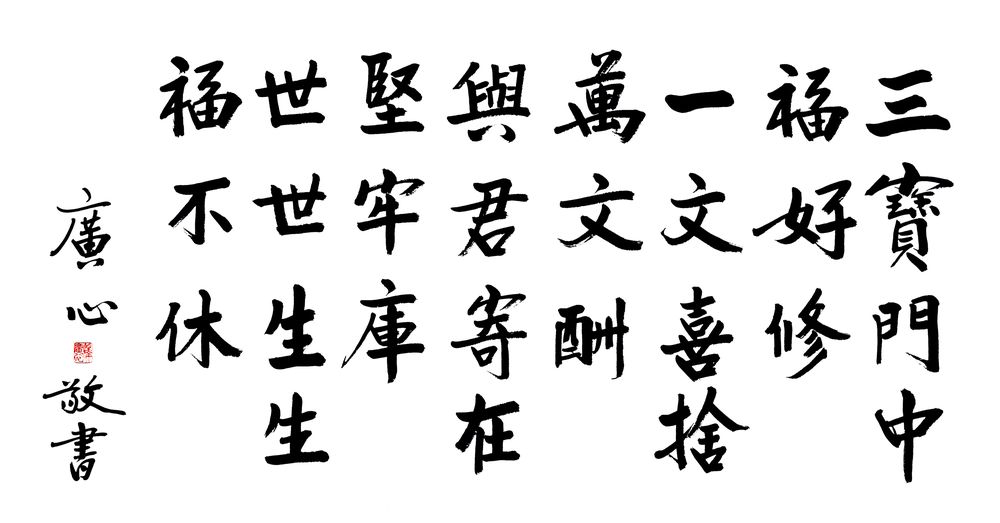 三寶門中
福好修
一文喜捨
萬文酬
與君寄在
堅牢庫
世世生生
福不休
廣心
敬書